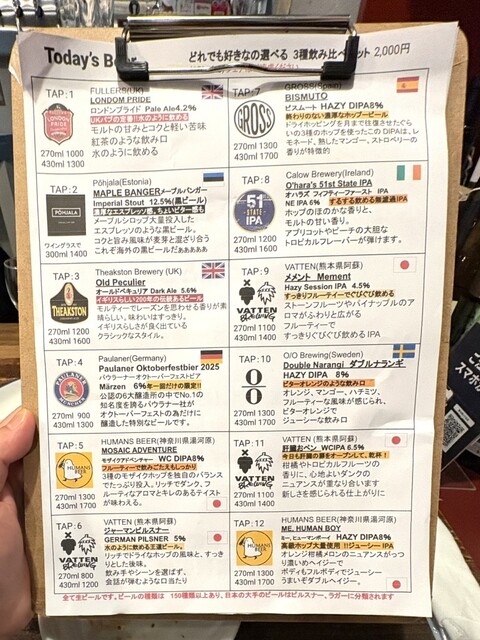 Today's Be
どれでも好きなの選べる 3種飲み比べ ット 2,000円
TAP:1
FULLERS(UK)
LONDOM PRIDE
ロンドンプライド Pale Ale4.2%
UKパブの定番!!水のように飲める
モルトの甘みとコクと軽い苦味
紅茶のような飲み口
水のように飲める
270ml 1000
430ml 1300
TAP:2
Põhjala(Estonia)
MAPLE BANGERメープルバンガー
Imperial Stout 12.5%(黒ビール)
濃厚なエスプレッソ感、ちょいビター感も
メープルシロップ大量投入した
エスプレッソのような黒ビール。
コクと旨み風味が麦芽と混ざり合う
これぞ海外の黒ビールだぁぁぁぁぁ
PÕHJALA
ワイングラスで
300ml 1400
TAP:3
Theakston Brewery (UK)
Old Peculier
オールドペキュリア Dark Ale 5.6%
イギリスらしい200年の伝統あるビール
モルティでレーズンを思わせる香りが素
晴らしい、味わいはすっきり!
イギリスらしさが良く出ている
クラシックなスタイル。
THEAKSTON
270ml 1200
430ml 1600
TAP:4
Paulaner(Germany)
Paulaner Oktoberfestbier 2025
パウラーナーオクトーバーフェストビア
Märzen 6%年一回だけの限定!!
公認の6大醸造所の中でNo.1の
知名度を誇るパウラナー社が
オクトーバーフェストの為だけに
醸造した特別なビールです。
270ml 900
430ml 1300
TAP:5
HUMANS BEER(神奈川県湯河原)
MOSAIC ADVENTURE
モザイクアドベンチャー WC DIPA8%
フルーティーで飲みごたえもしっかり
3種のモザイクホップを独自のバランス
でたっぷり投入。リッチでダンク、フ
ルーティなアロマとキレのあるテイスト
が味わえる。
HUMANS BEER
270ml 1300
430ml 1700
TAP:6
VATTEN (熊本県阿蘇)
ジャーマンピルスナー
GERMAN PILSNER 5%
水のように飲める王道ビール。
リッチでドライなホップの風味と、すっき
りとした後味。
飲み手やシーンを選ばず、
会話が弾むような口当たり
VATTEN
BREWING
270ml 800
430ml 1200
TAP:7
GROSS(Spain)
BISMUTO
ビスムート HAZY DIPA8%
終わりのない濃厚なホップビール
ドライホッピングを月まで往復させたぐら
いの3種のホップを使ったこのDIPAは、レ
モネード、熟したマンゴー、ストロベリー
の香りが特徴的
GROSS
270ml 1300
430ml 1700
TAP:8
Calow Brewery(Ireland)
O'hara's 51st State IPA
オハラズ フィフティーファースト IPA
NE IPA 6% するする飲める無濾過IPA
ホップのほのかな香りと、
モルトの甘い香り。
アプリコットやピーチの大胆な
トロピカルフレーバーが弾けます。
51
STATE
IPA
270ml 1200
430ml 1600
TAP:9
VATTEN(熊本県阿蘇)
メメント Mement
Hazy Session IPA 4.5%
すっきりフルーティーでぐびぐび飲める
ストーンフルーツやパイナップルのア
ロマがふわりと広がる
フルーティーで
すっきりぐびぐび飲めるIPA
VATTEN
BREWING
270ml 1100
430ml 1400
TAP:10
O/O Brewing(Sweden)
Double Narangi ダブルナランギ
HAZY DIPA 8%
ビターオレンジのような飲み口
オレンジ、マンゴー、ハチミツ、
フルーティーな風味が感じられ、
ビターオレンジで
ジューシーな飲み口
270ml 1300
430ml 1700
TAP:11
VATTEN (熊本県阿蘇)
肝臓おペン WCIPA 6.5%
今日も肝臓の扉をオープンして、乾杯!
柑橘やトロピカルフルーツの
香りに、心地よいダンクの
ニュアンスが重なり合います
新しさを感じられる仕上がりに
VATTEN
BREWING
270ml 1100
430ml 1400
TAP:12
HUMANS BEER(神奈川県湯河原)
ME, HUMAN BOY
ミー、ヒューマンボーイ HAZY DIPA8%
高級ホップ大量使用!!ジューシーIPA
オレンジ柑橘メロンのニュアンスがっつ
り濃いめヘイジーで
ボディもフルボディでジューシー
うまいぞダブルヘイジー。
HUMANS BEER
270ml 1300
430ml 1700
全て生ビールです。ビールの種類は 150種類以上あり、日本の大手のビールはピルスナー、ラガーに分類されます